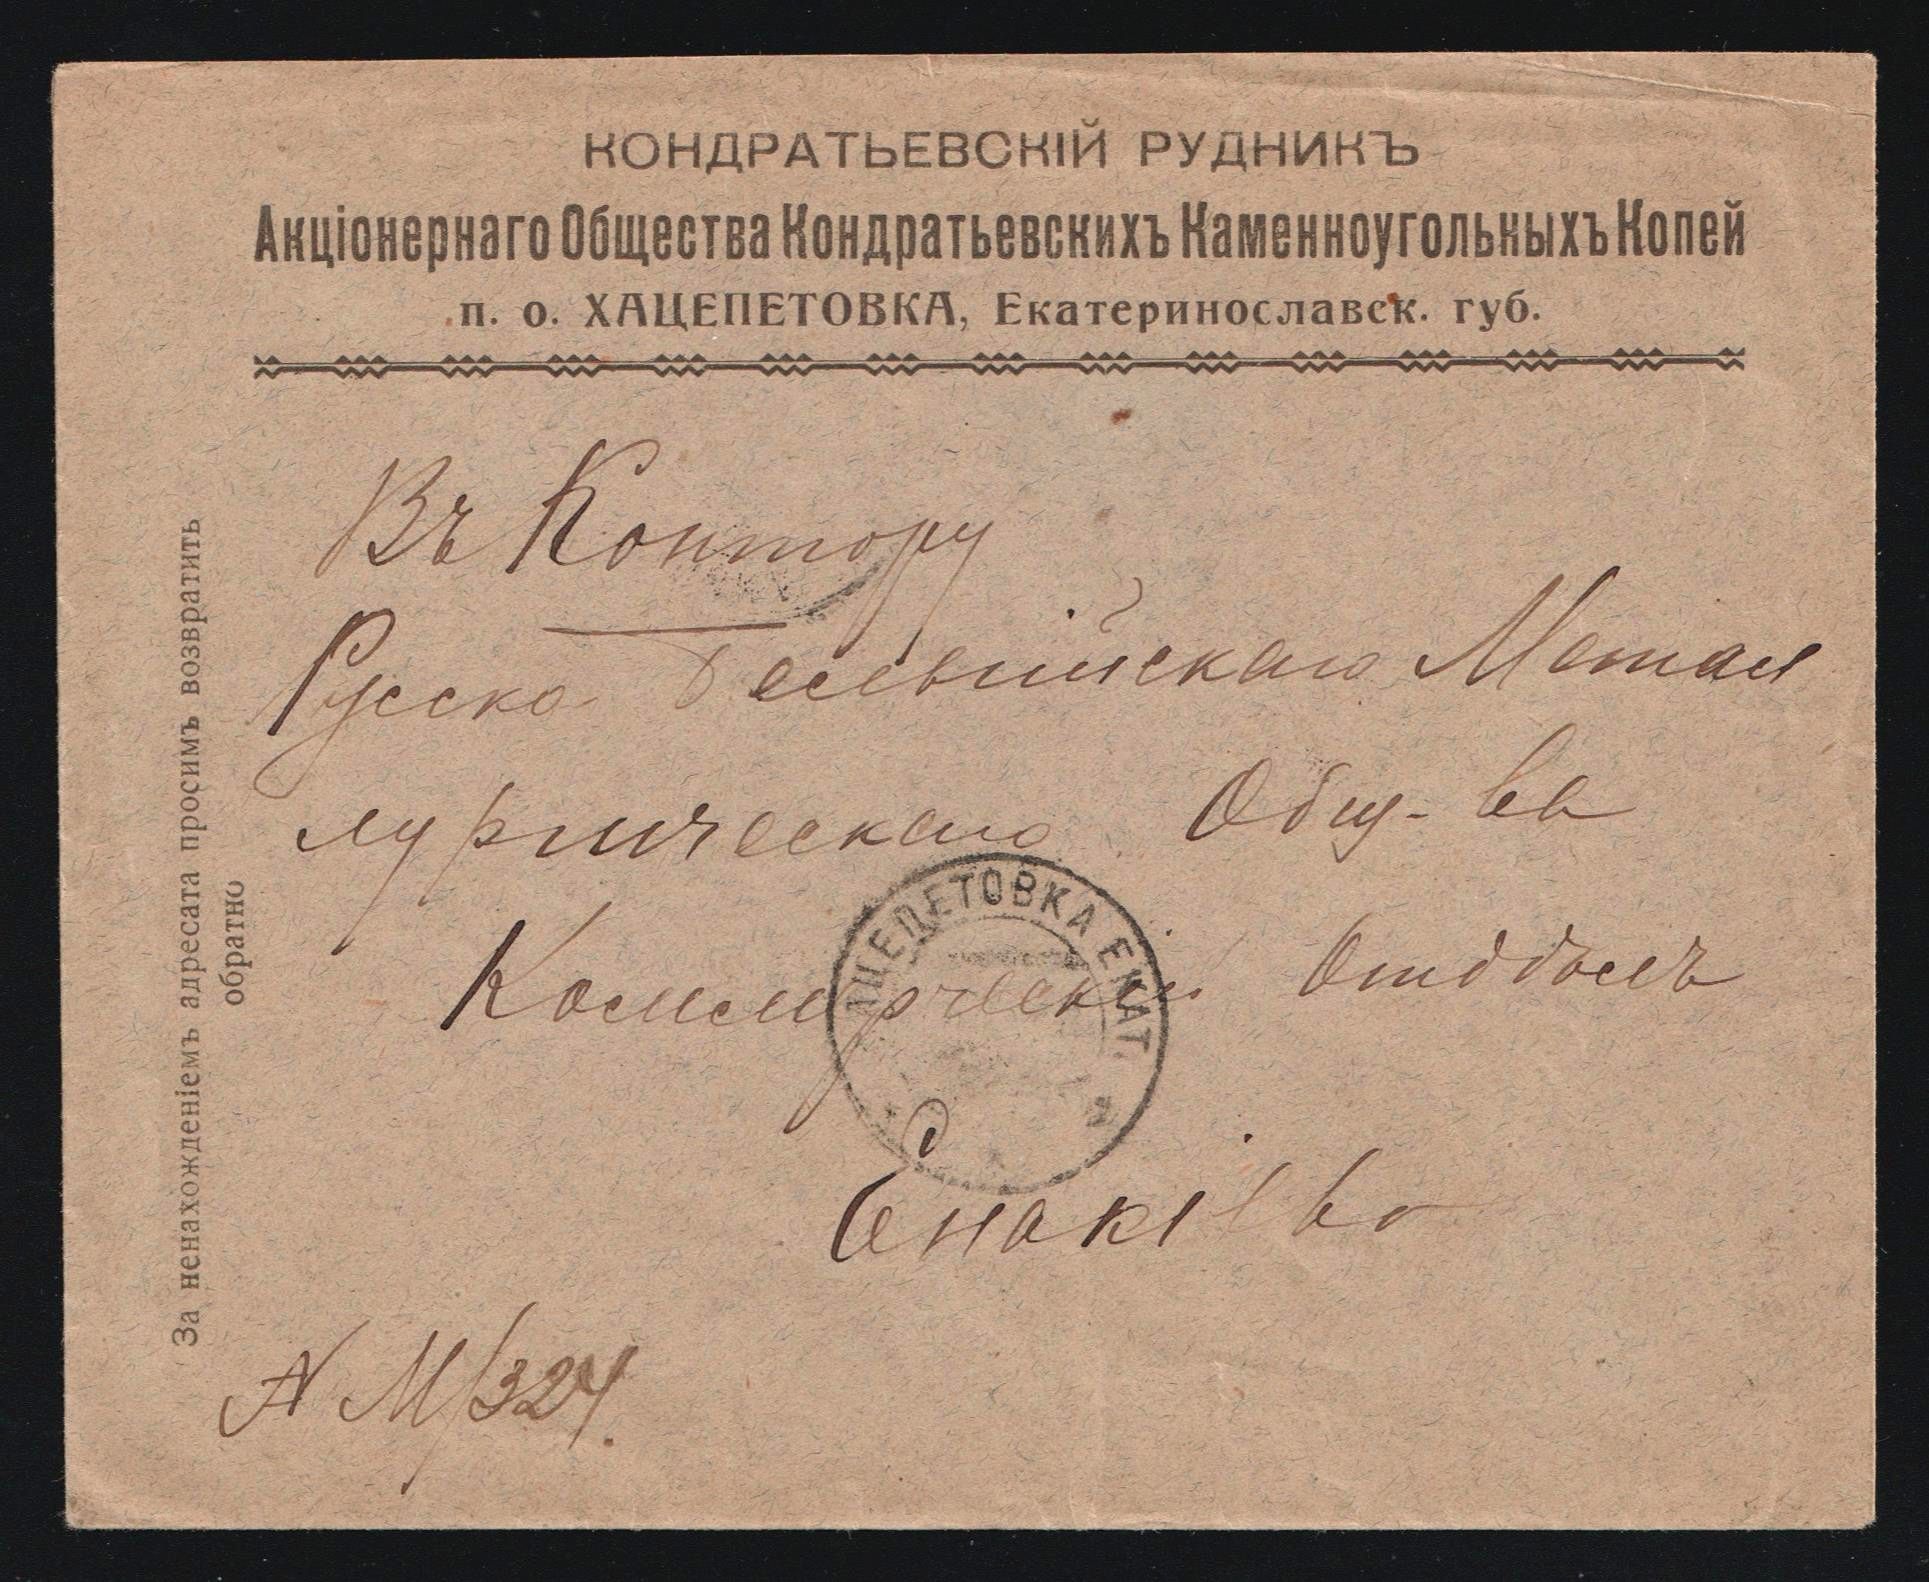 КОНДРАТЬЕВСКІЙ РУДНИКЪ
Акціонернаго Общества Кондратьевскихъ Каменноугольныхъ Копей
п. о. ХАЦЕПЕТОВКА, Екатеринославск. губ.
За ненахожденіемъ адресата просимъ возвратить
обратно
Въ Контору
Русско-Бельгійскаго Метал
лургическаго Общ-ва
Коммерческій Отдѣлъ
АЦЕПЕТОВКА ЕКАТ.
Енакіево
N М/324.